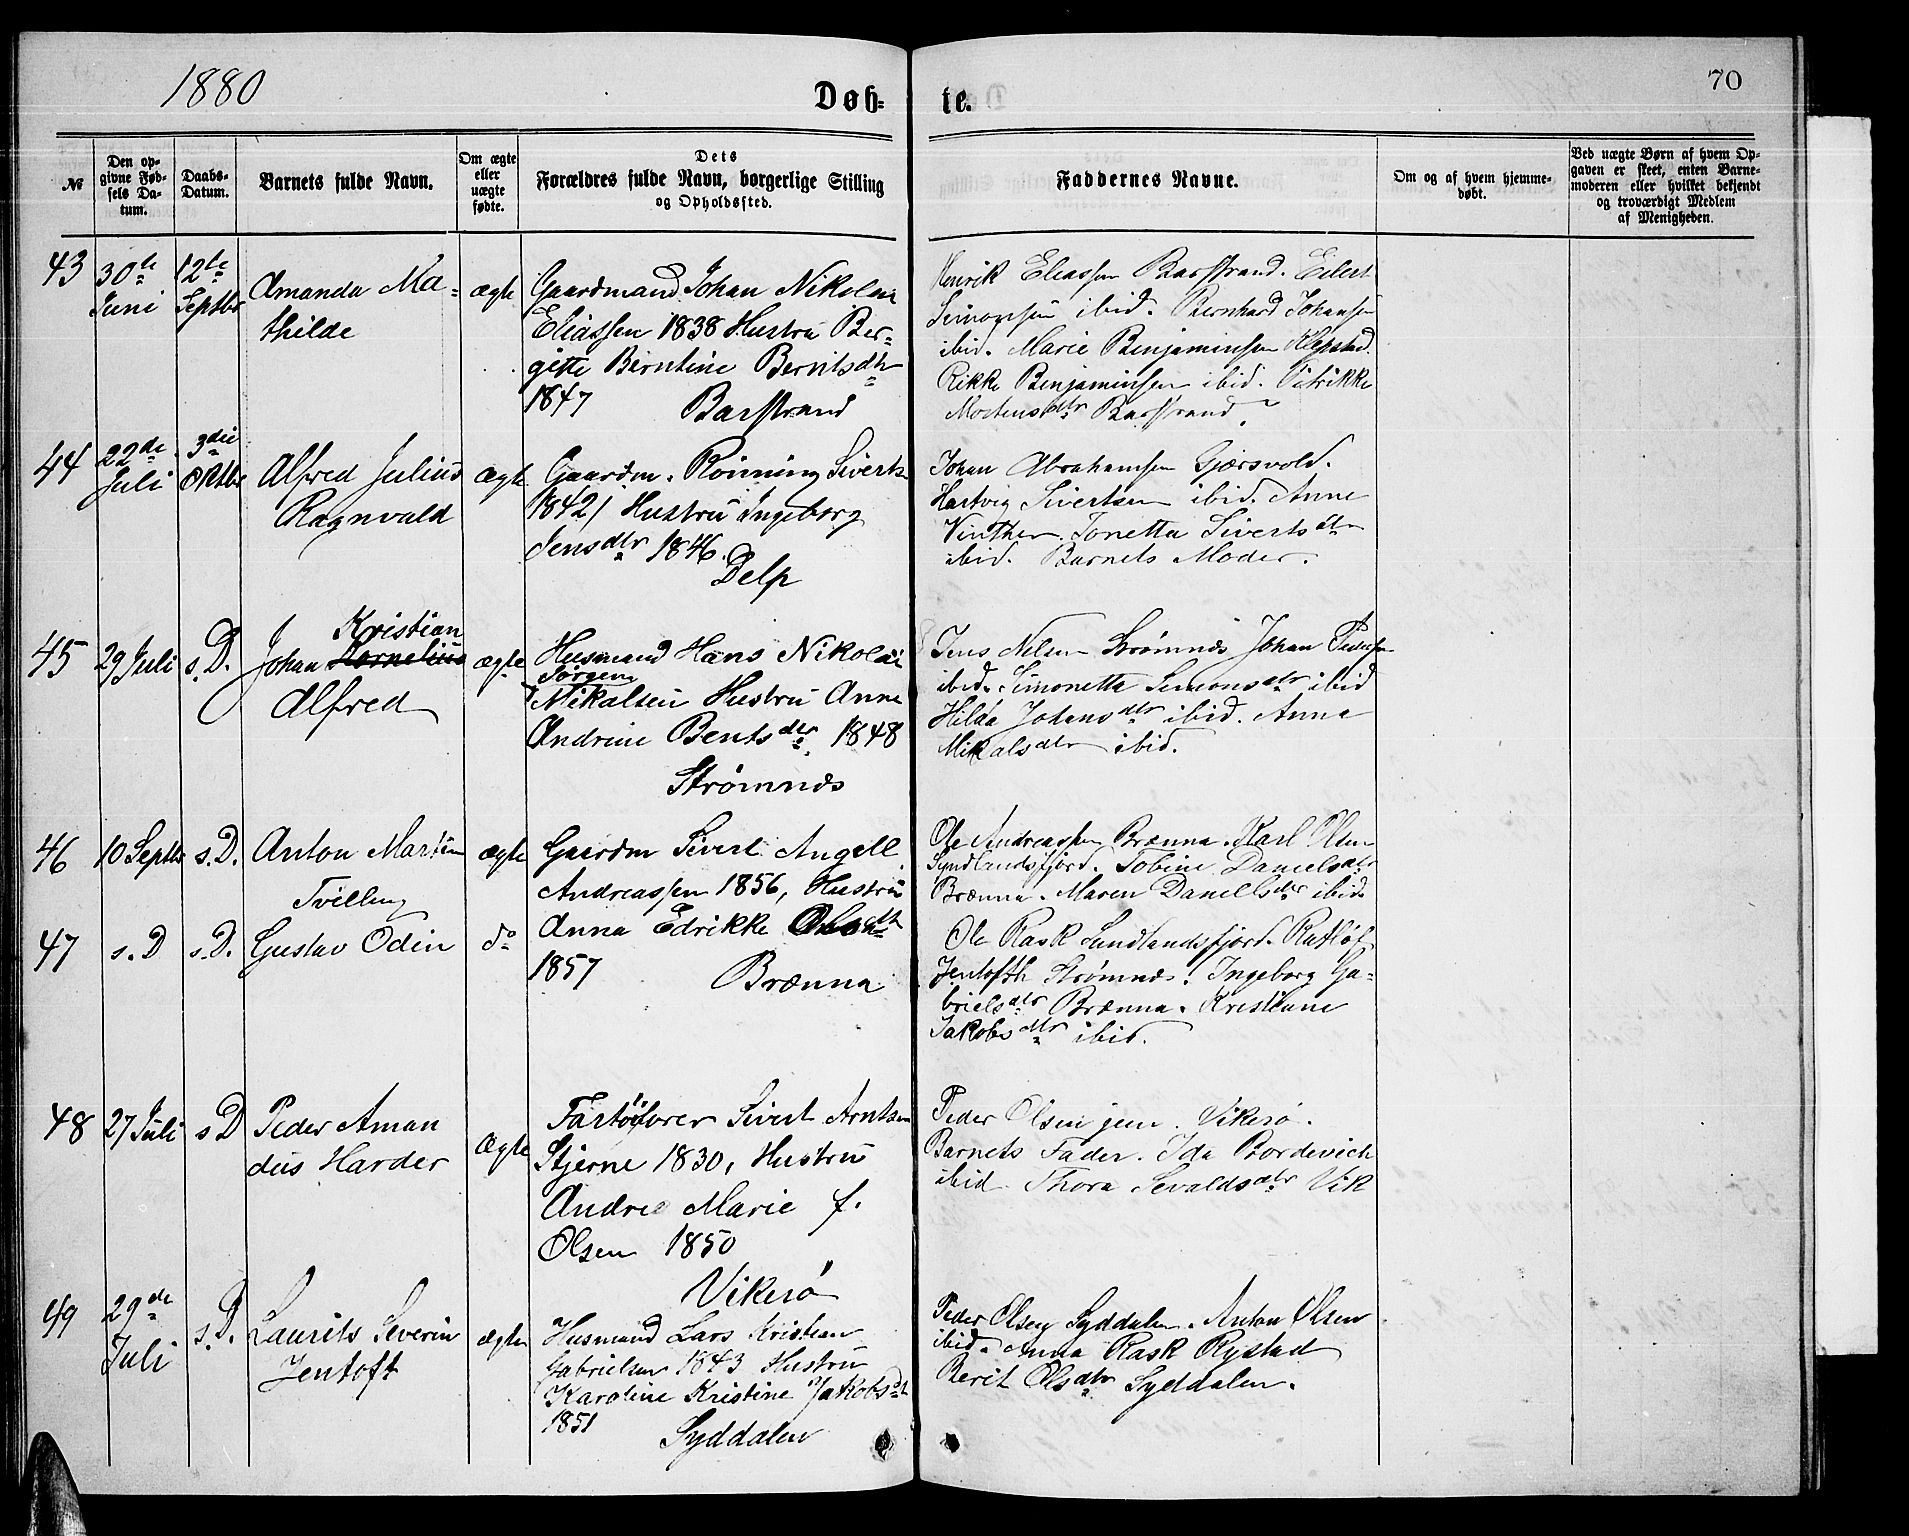 1880
Døb-
te.
70
№
Den op-
givne Fød-
sels Da-
tum.
Daabs-
Datum.
Barnets fulde Navn.
Om ægte
eller
uægte
fødte.
Dets
Forældres fulde Navn, borgerlige Stilling
og Opholdssted.
Faddernes Navne.
Om og af hvem hjemme-
døbt.
Ved uægte Børn af hvem Op-
gaven er skeet, enten Barne-
moderen eller hvilket bekjendt
og troværdigt Medlem
af Menigheden.
43
30te
Juni
12te
Septbr
Amanda Ma-
thilde
ægte
Gaardmand Johan Nikolai
Eliassen 1838 Hustru Ber-
gitte Berntine Berntsdtr
1847 Barstrand
Henrik Eliassen Barstrand. Eilert
Simonsen ibid. Bernhard Johansen
ibid. Marie Benjaminsen Klepstad.
Rikke Benjaminsen ibid.
Mortensdtr Barstrand
44
22de
Juli
3die
Oktbr
Alfred Julius
Ragnvald
ægte
Gaardm. Rønning Sivertsen
1842, Hustru Ingeborg
Jensdtr 1846.
Delp
Johan Abrahamsen Gjærsvold.
Hartvig Sivertsen ibid. Anne
Vinther. Tonetta Sivertsdtr
ibid. Barnets Moder.
45
29 Juli
s. D.
Kristian
Johan Kornelius
Alfred
ægte
Husmand Hans Nikolai
Jörgen
Mikalsen Hustru Anne
Andrine Bentsdtr. 1848
Strømnæs
Jens Nelsen Strømnæs Johan Pedersen
ibid. Simonetta Simonsdtr ibid
Hilda Johansdtr ibid. Anna
Mikalsdtr ibid.
46
10 Septbr
s. D.
Anton Martin
Tvilling
ægte
Gaardm Sivert Angell
Andreassen 1856, Hustru
Anna Edrikke
1857
Brænna
Ole Andreassen Brænna. Karl Olsen
Sundlandsfjord. Tobine Danielsdtr
Brænna. Maren Danielsdtr ibid.
47
s. D
s. D.
Gustav Odin
do
Ole Rask Sundlandsfjord.
Jentofth Strømnæs. Ingeborg Ga-
brielsdtr Brænna. Kristiane
Jakobsdtr ibid.
48
27 Juli
s D
Peder Aman
dus Harder
Ægte
Fartøifører Sivert Arntsen
Stjerne 1830, Hustru
Andrea Marie f.
Olsen 1850
Vikerø
Peder Olsen jun. Vikerø.
Barnets Fader. Ida Bordevich
ibid Thora Sevaldsdtr Vik
49
29de
Juli
s. D.
Laurits Severin
Jentoft
ægte
Husmand Lars Kristian
Gabrielsen 1843 Hustru
Karoline Kristine Jakobsdt
1851
Syddalen
Peder Olsen Syddalen. Anton Olsen
ibid. Anna Rask Rystad
Berit Olsdtr Syddalen.